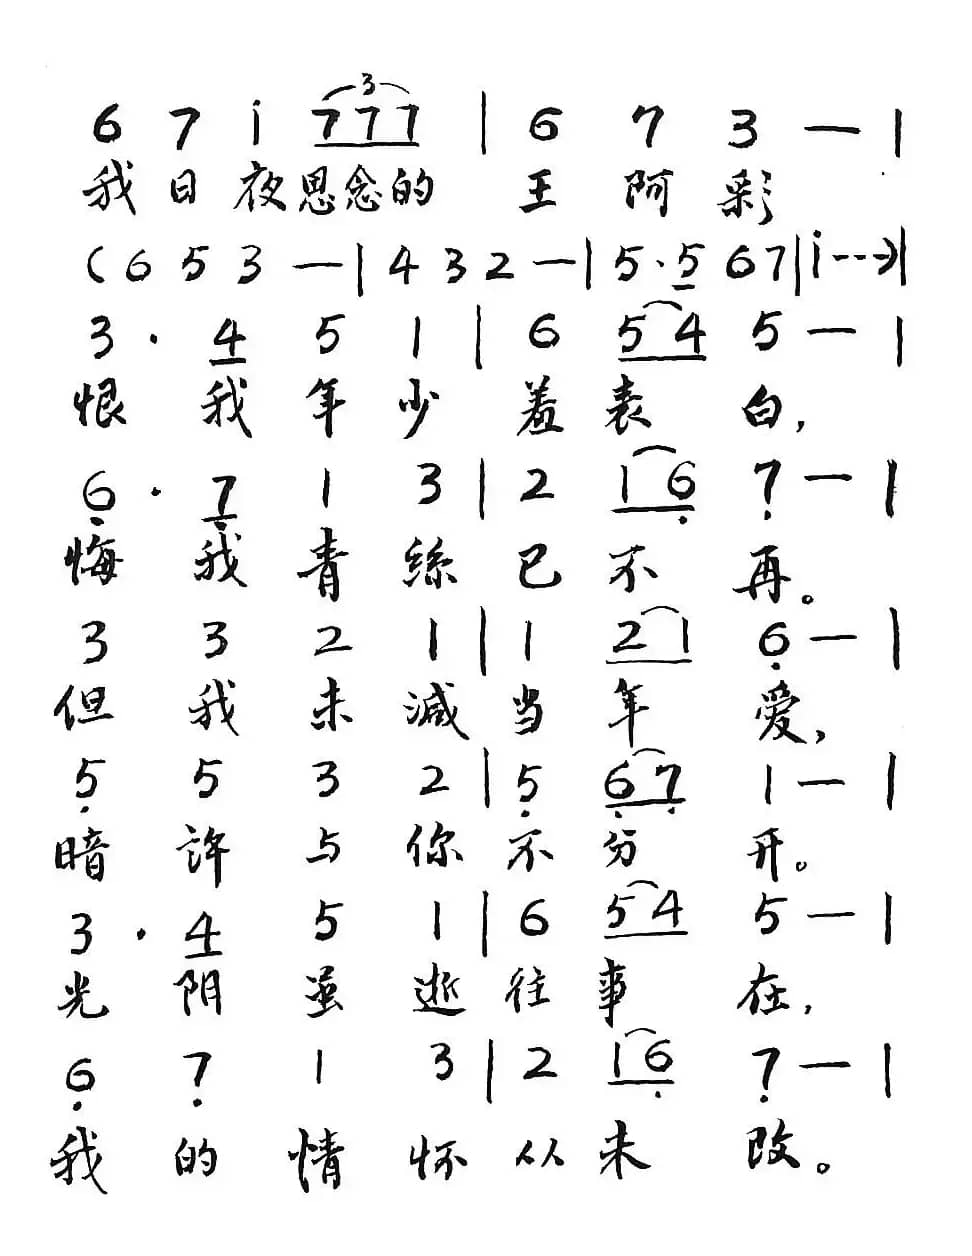 6 7 i 3 777 | 6 7 3 — |
我日夜思念的 王阿彩
(6 5 3 — | 4 3 2 — | 5·5 67 | i---) |
3 · 4 5 1 | 6 54 5 — |
恨我年少羞表白,
6 · 7 1 3 | 2 16 7 — |
悔我青絲已不再。
3 3 2 1 | 1 21 6 — |
但我未減当年爱,
5 5 3 2 | 5 67 1 — |
暗許与你不分开。
3 · 4 5 1 | 6 54 5 — |
光阴虽逝往事在,
6 7 1 3 | 2 16 7 — |
我的情怀从未改。